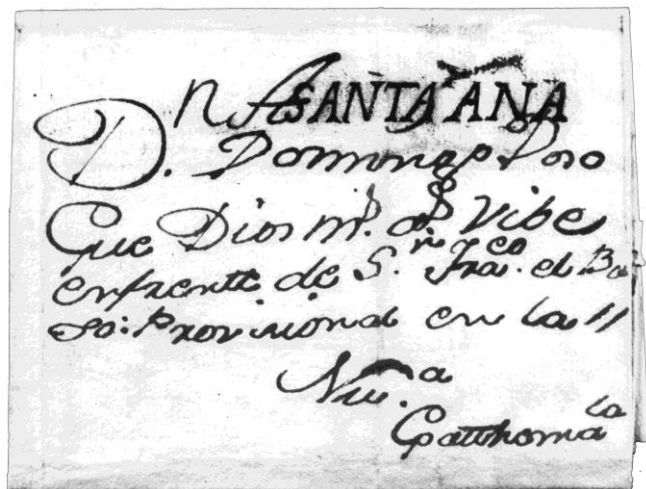 SANTA ANA
D.n A
Domingo
Que Dios m.s a.s Vibe
enfrente de S.n Fra.co el Ba
so: Provicional en la
Nu.a
Goathema la